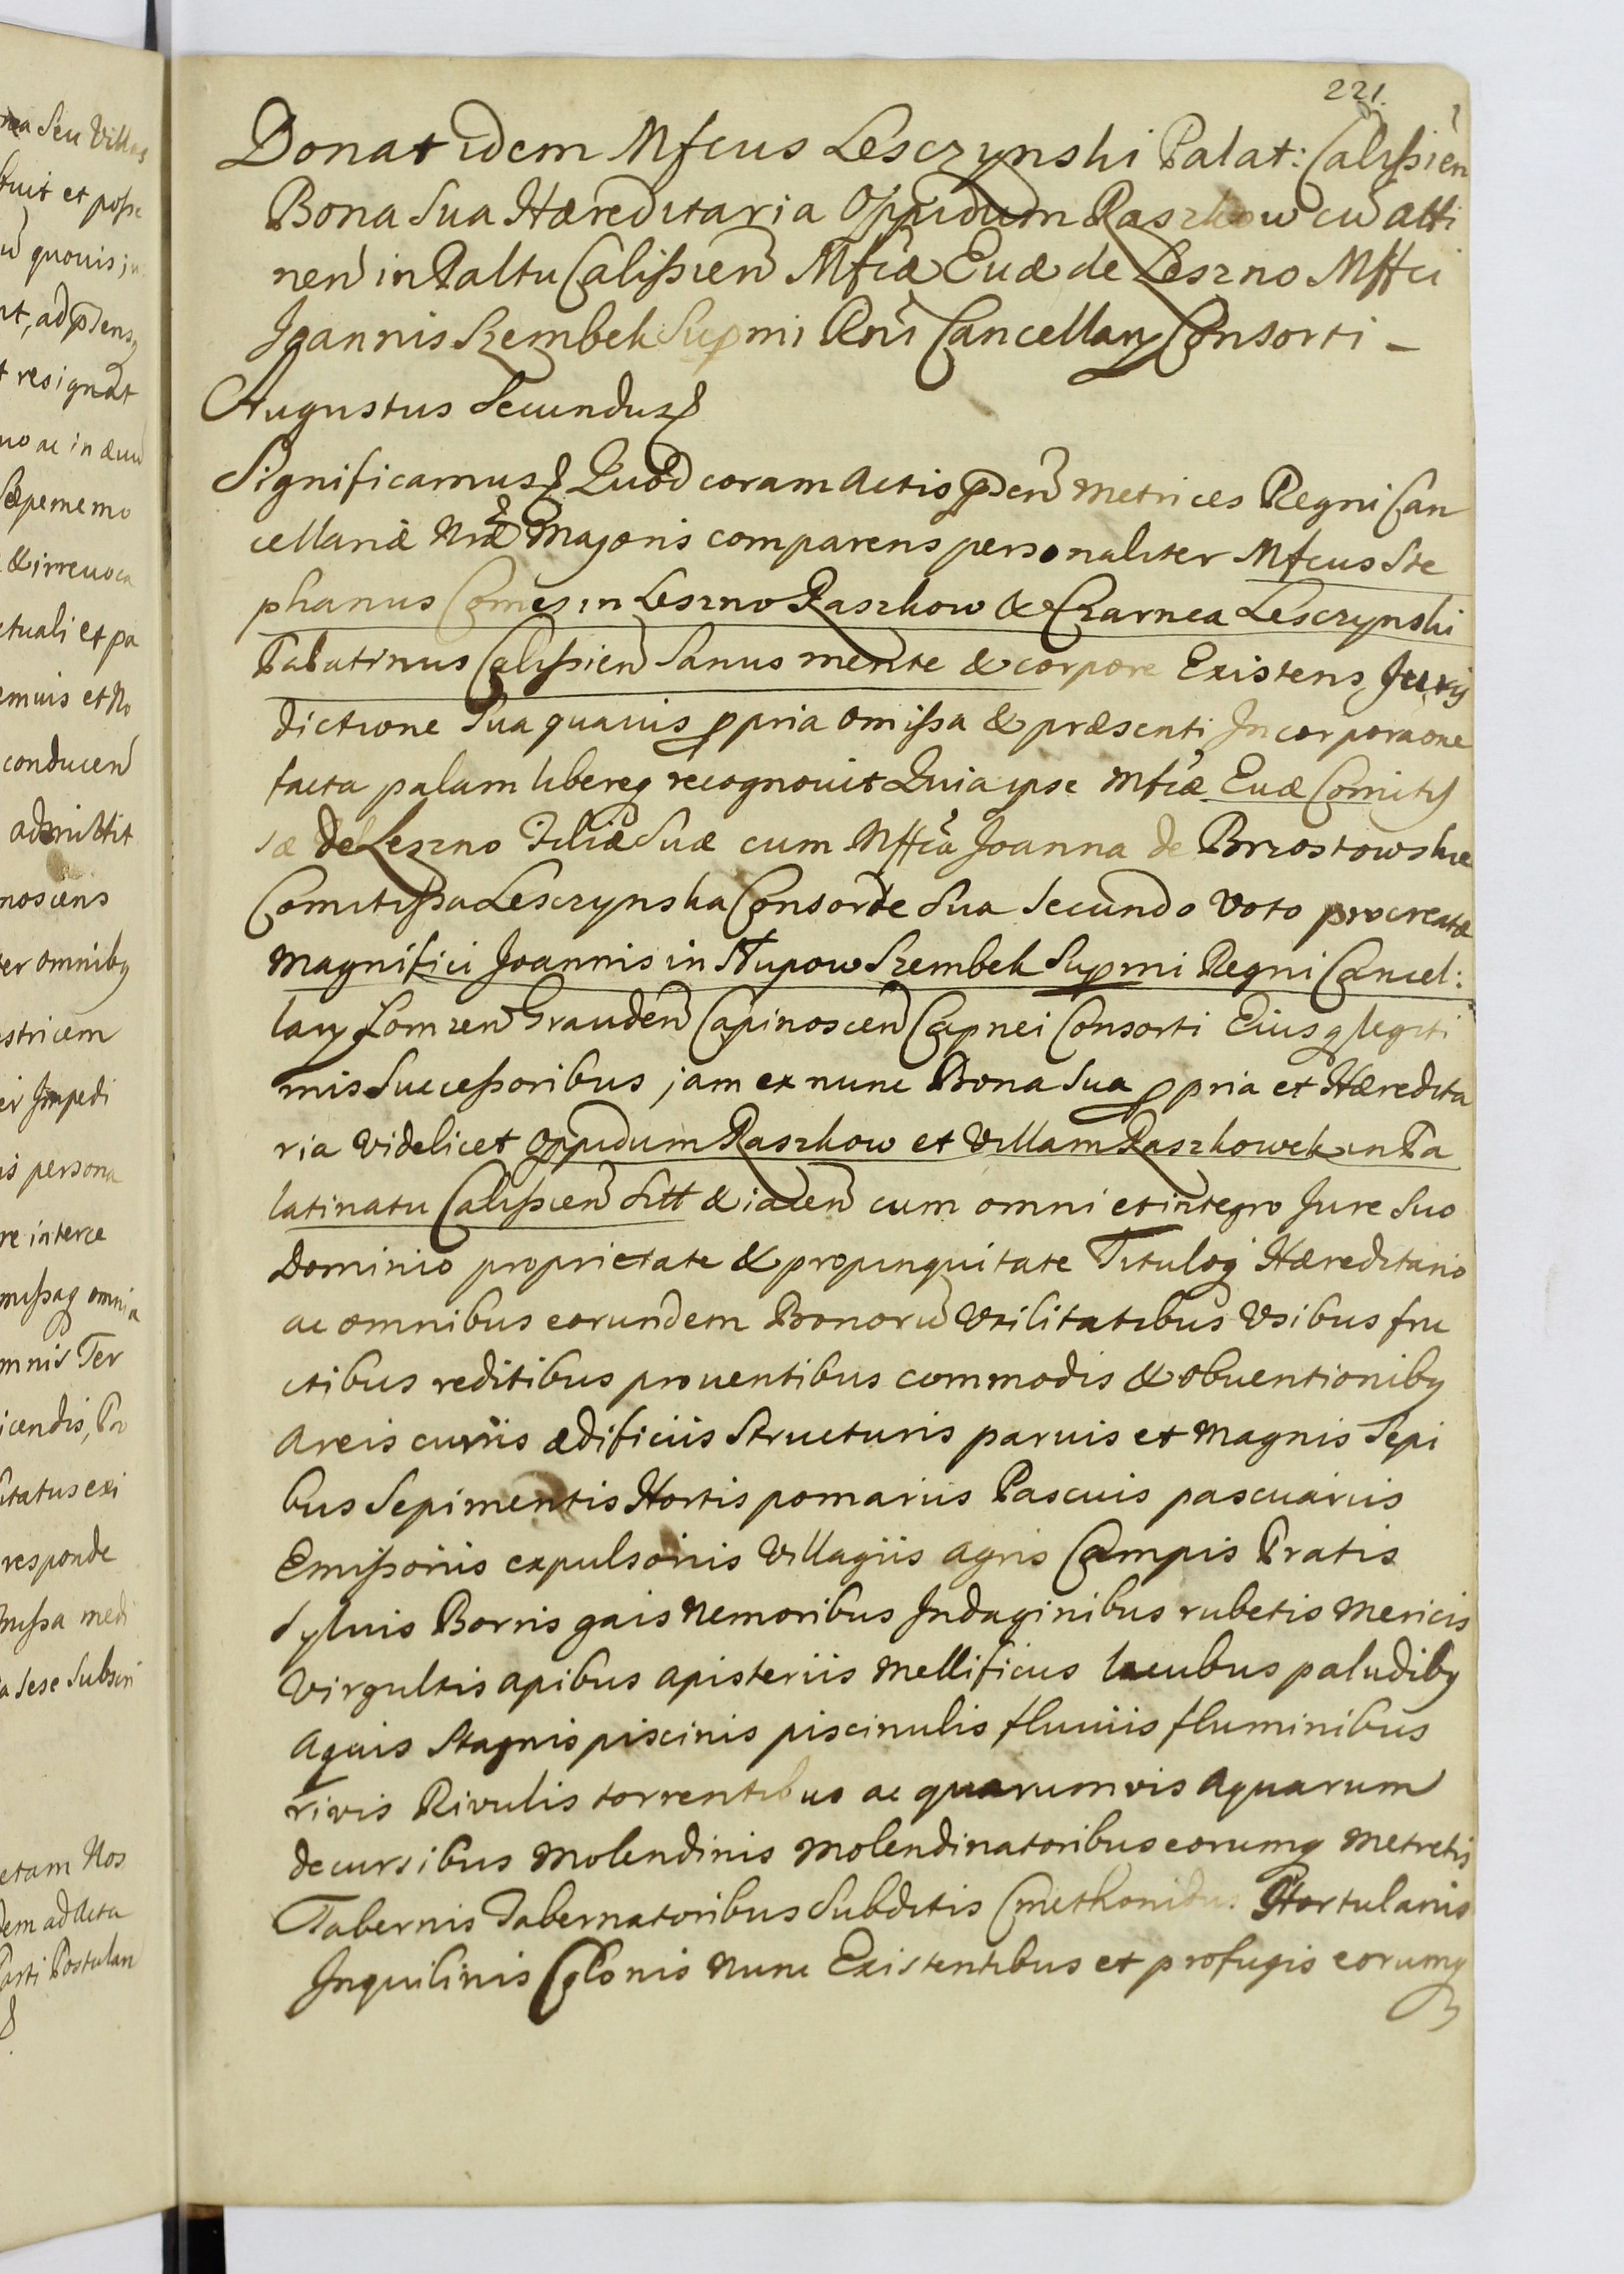 221.
Donat idem Mfcus Lesczynski Palat: Calissien
Bona Sua Hæreditaria Oppidum Raszkow cu atti
nen in Paltu Calissien Mfcæ Euæ de Leszno Mffci
Joannis Szembek Supmi Rni Cancellarij Consorti –
Augustus Secundus
Significamus Quod coram Actis pden Metrices Regni Can
cellariæ Nræ Majoris comparens personaliter Mfcus Ste
phanus Comes in Leszno Raszkow & Czarnca Lesczynski
Palatinus Calissien Sanus mente & corpore Existens, Juris
dictione Sua quauis ppria omissa & præsenti Incorporaone
facta palam libereq recognouit Quia ipse Mfcæ Euæ Comitis
sæ de Leszno Filiæ Suæ cum Mffca Joanna de Brzostowskie
Comitissa Lesczynska Consorte Sua Secundo Voto procreatæ
Magnifici Joannis in Słupow Szembek Supmi Regni Cancel:
larij Lomzen Grauden Capinoscen Capnei Consorti Eiusq legiti
mis Successoribus jam ex nunc Bona Sua ppria et Hæredita
ria Videlicet Oppidum Raszkow et Villam Raszkowek in Pa
latinatu Calissien Sitt & iacen cum omni et integro Jure Suo
Dominio proprietate & propinquitate Tituloq Hæreditario
ac omnibus eorundem Bonoru Vtilitatibus Vsibus fru
ctibus reditibus prouentibus commodis & obuentionibq
Areis curiis ædificiis Structuris paruis et Magnis Sepi
bus Sepimentis Hortis pomariis Pascuis pascuariis
Emissoriis expulsoriis Villagiis Agris Campis Pratis
Syluis Borris gais Nemoribus Indaginibus rubetis Mericis
Virgultis apibus apisteriis Mellificus lacubus paludibq
Aquis Stagnis piscinis piscinulis fluuiis fluminibus
rivis Rivulis torrentibus ac quarumvis Aquarum
decursibus Molendinis Molendinatoribus eorumq Metretis
Tabernis Tabernatoribus Subditis Cmethonibus Hortulanis
Inquilinis Colonis Nunc Existentibus et profugis eorumq